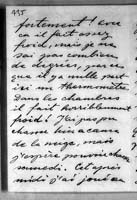 445
fortement! ever
ca il fait assez
froid, mais je ne
sai pas combien
de degrés, parce
que il y a nulle part
ici un thermomètre
Dans les chambres
il fait horriblement
froid! J'ai pas pu
chasse hier a cause
de la neige, mais
j'espère pouvoir chasser
samedi. Cet après
midi j'ai joué au